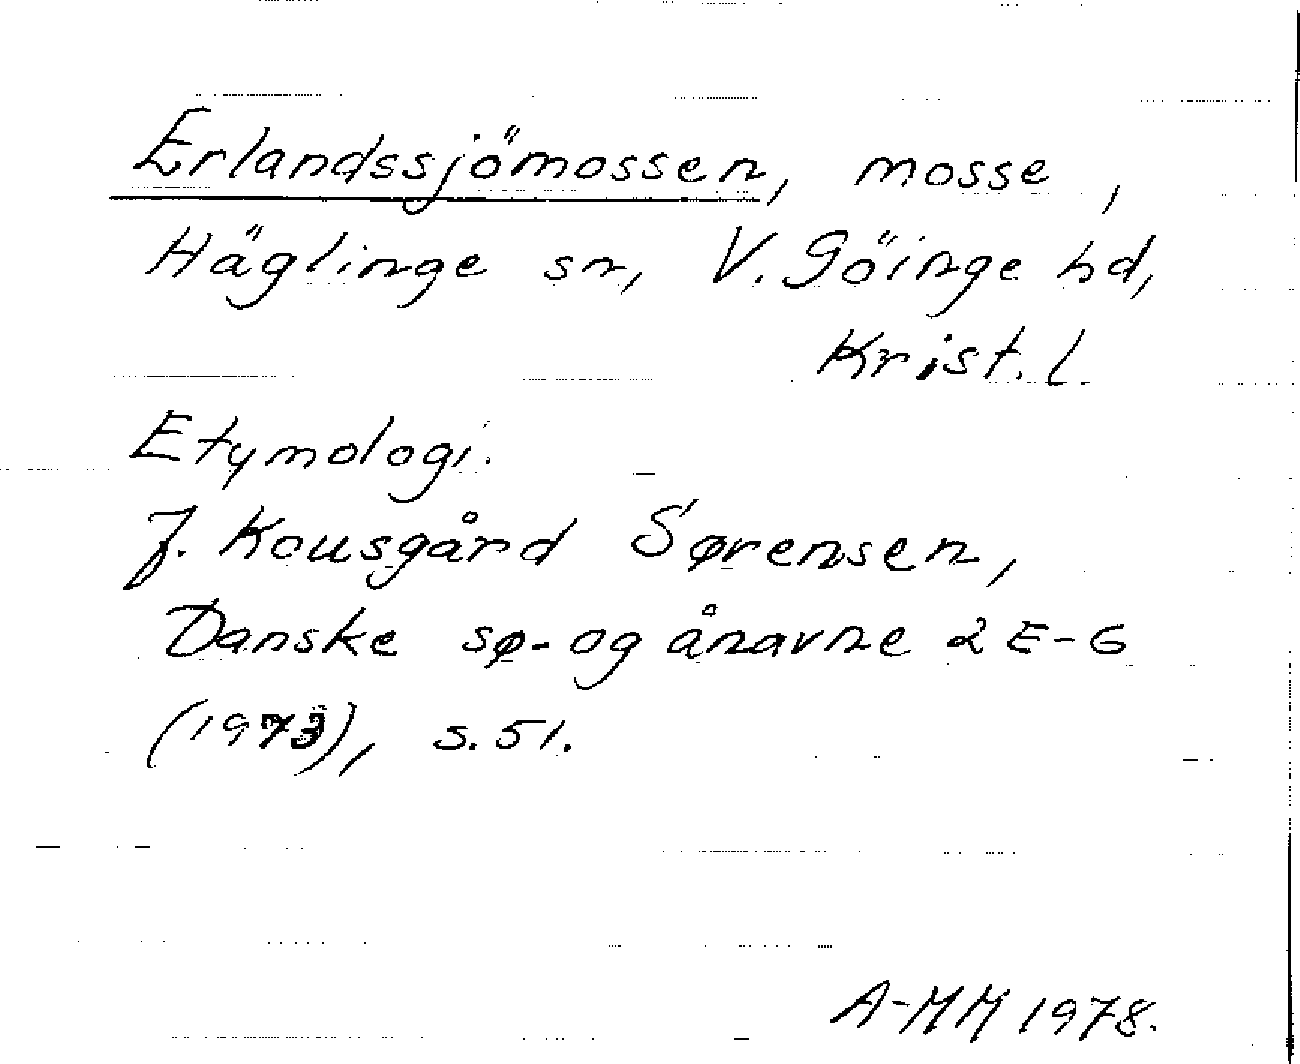 Erlandssjömossen, mosse,
Häglinge sn, V. Göinge hd,
Krist. l.
Etymologi.
J. Kousgård Sørensen,
Danske sø- og ånavne 2 E-G
(1973), s. 51.
A-MM 1978.